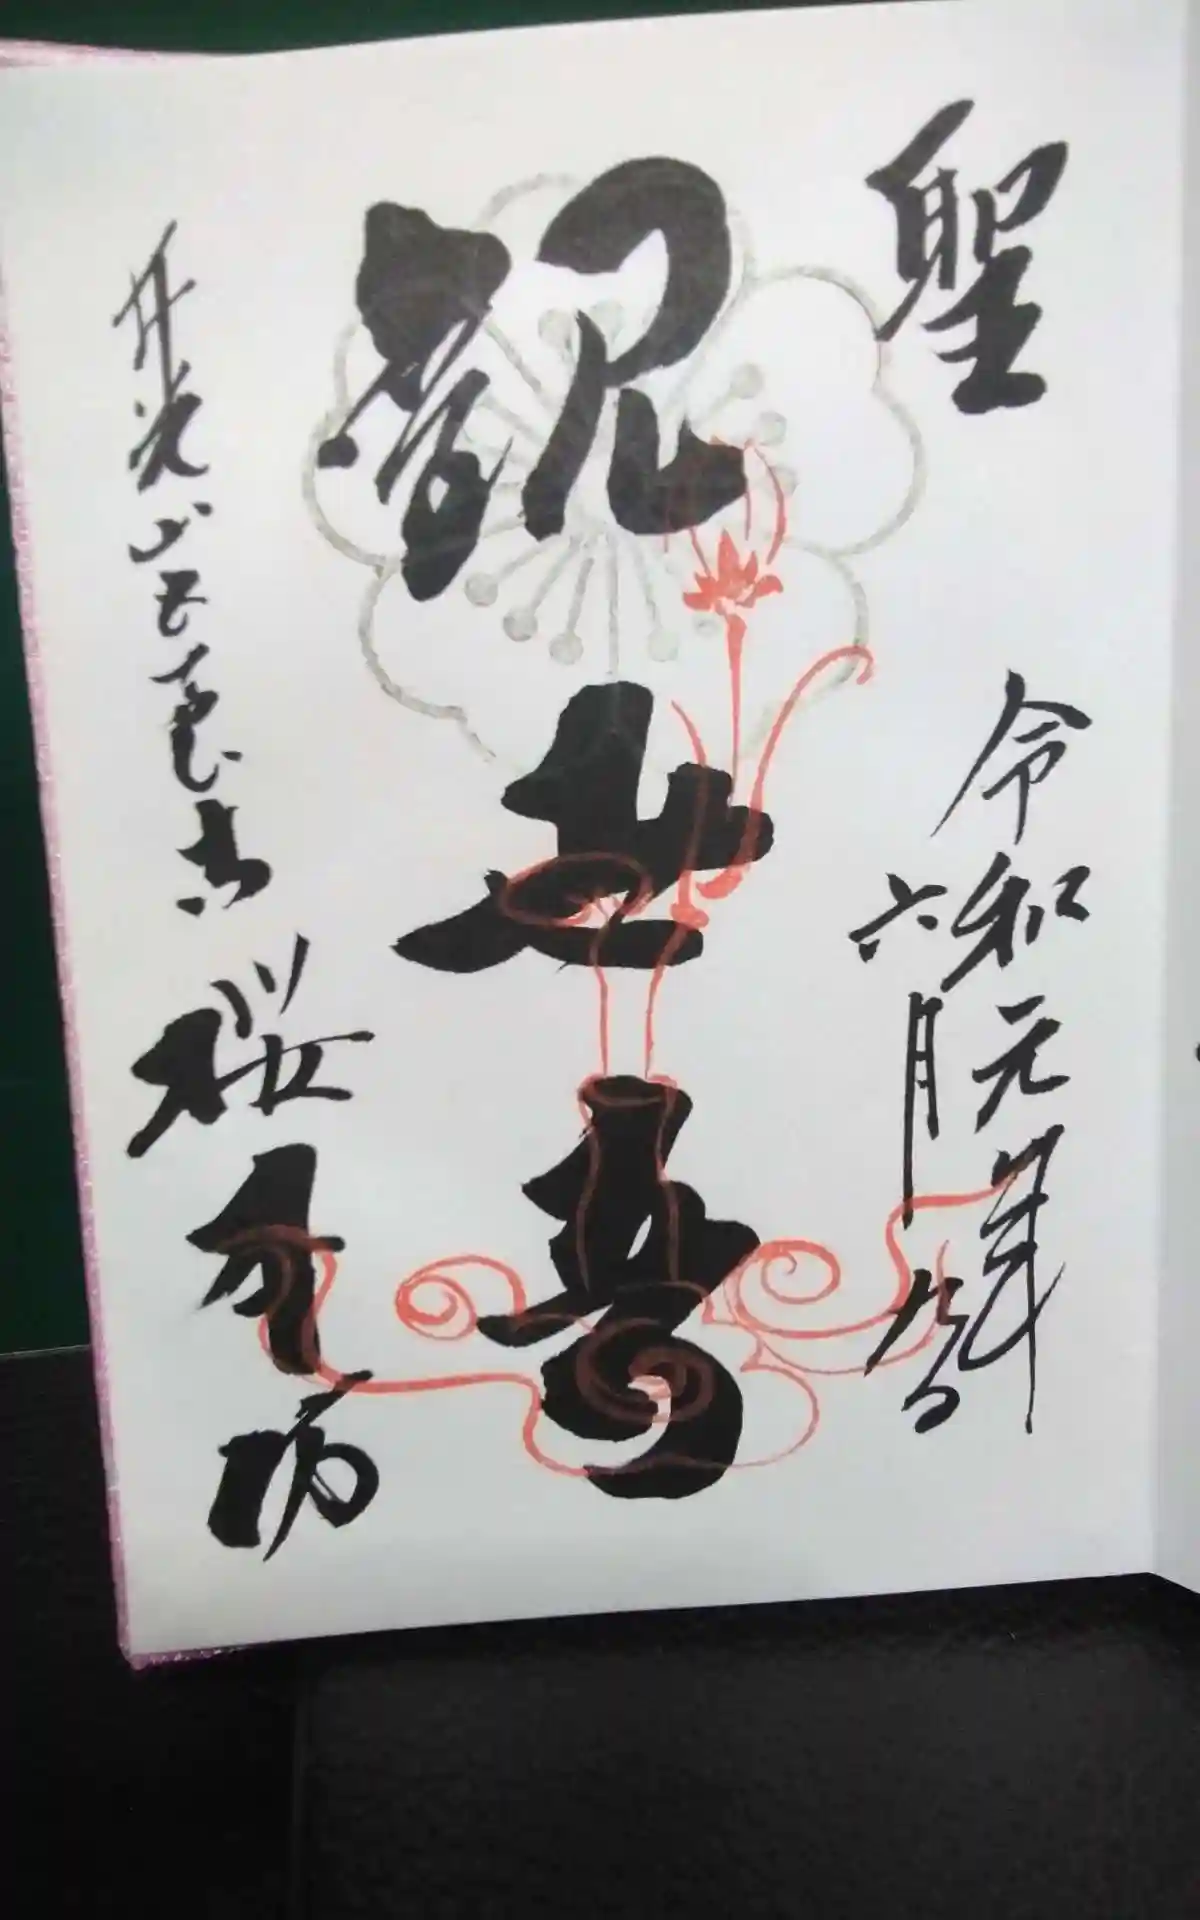 聖
令和元年
六月
観世音
井光山五臺寺
桜本坊